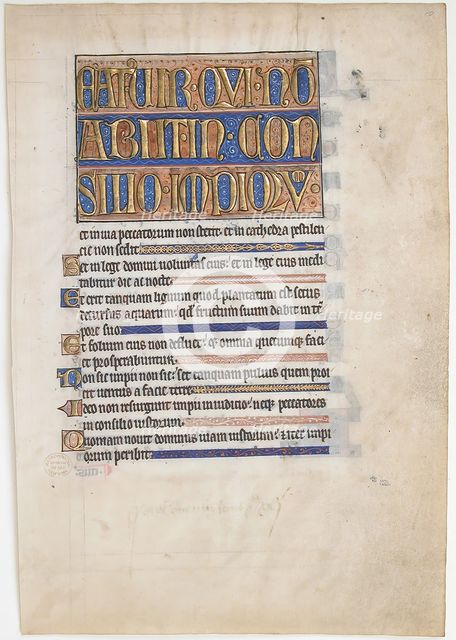 EATUIR QVI NŌ
ABIIT IN CON
SILIO IMPIORV̄
et in uia peccatorum non stetit et in cathedra pestilen
tie non sedit
Set in lege domini uoluntas eius et in lege eius medi
tabitur die ac nocte
Et erit tanquam lignum quod plantatum est secus
decursus aquarum qd fructum suum dabit in tē
pore suo
Et folium eius non defluet et omnia quecunq; faci
et prosperabuntur
Non sic impii non sic set tanquam puluis quem proi
cit uentus a facie terre
Ideo non resurgunt impii in iudicio neq; peccatores
in consilio iustorum
Quoniam nouit dominus uiam iustorum et iter impi
orum peribit
Heritage